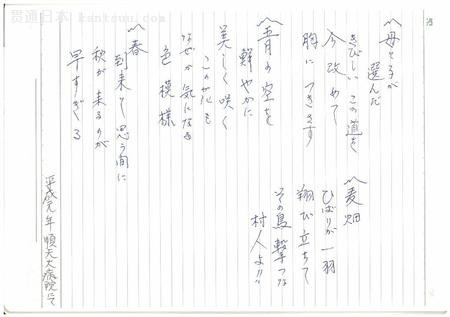 贯通日本 kantsuu.com
〽母と子が
選んだ
きびしい この道を
今改めて
胸に つきさす
〽五月の空を
鮮やかに
美しく咲く
この花も
なぜか気になる
色模様
〽春
到来と思う間に
秋が来るのが
早すぎる
〽麦畑
ひばりが一羽
翔び立ちて
その鳥撃つな
村人よ!!
平成元年順天大病院にて